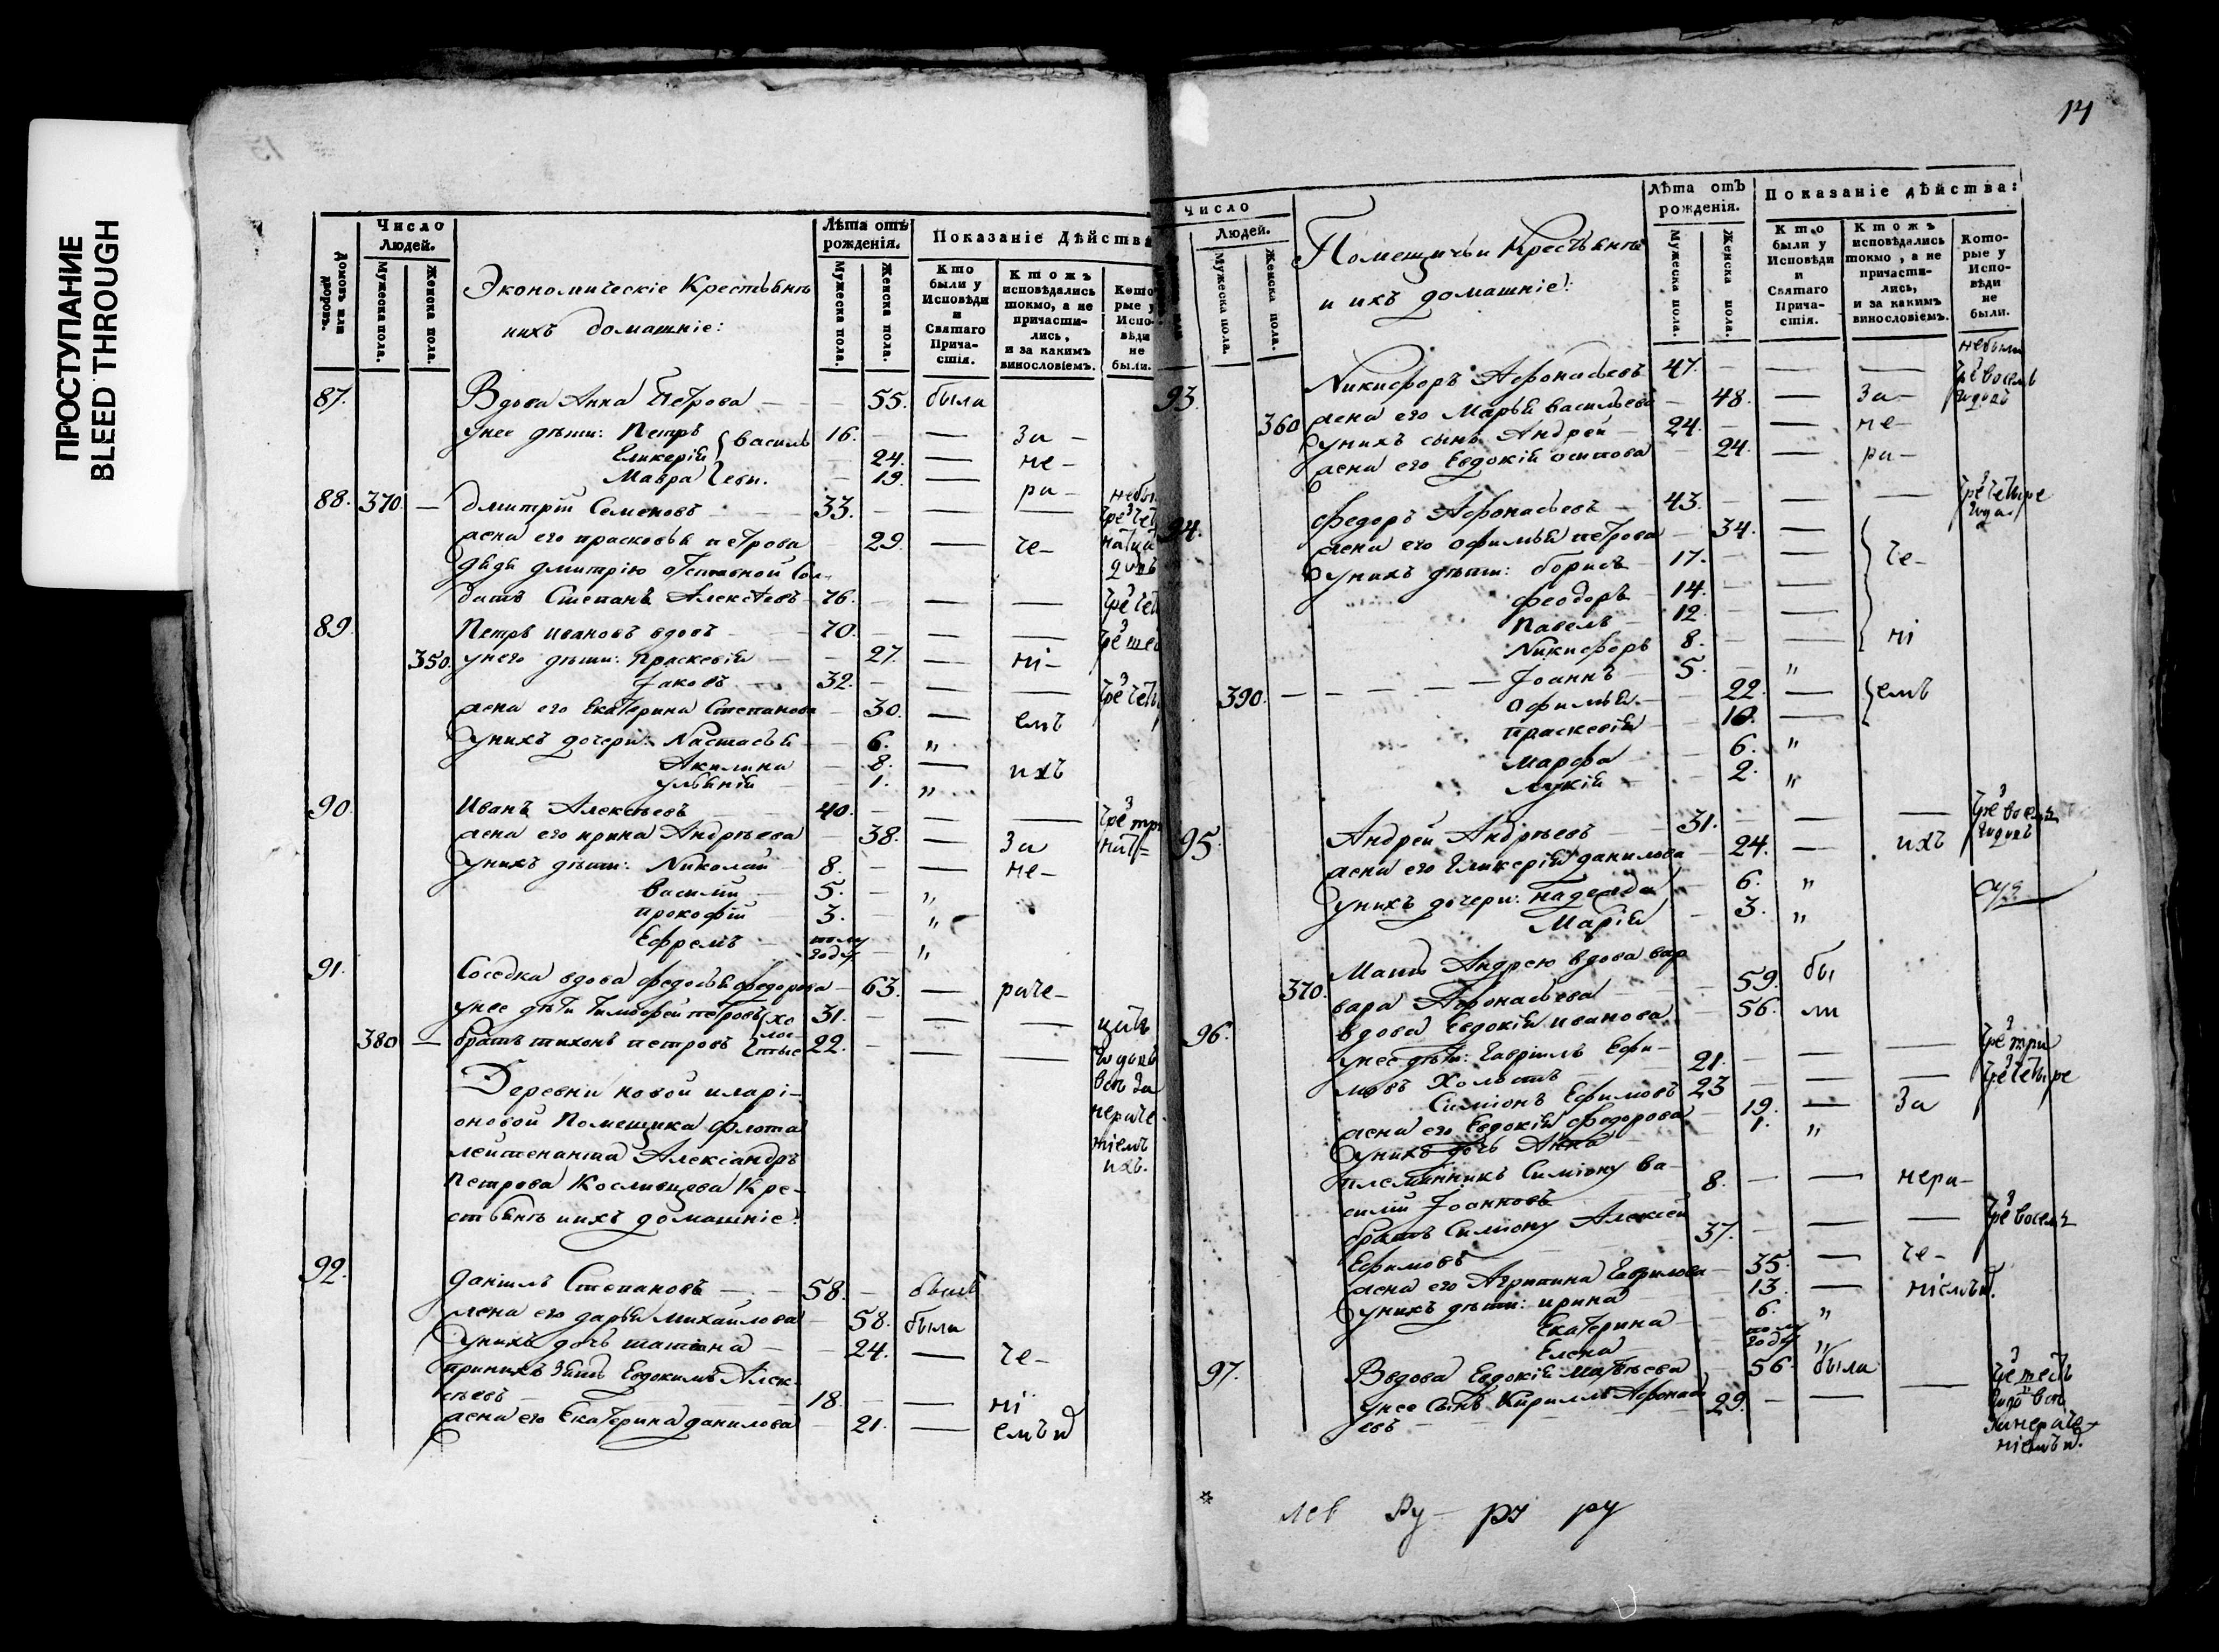 ПРОСТУПАНИЕ
BLEED THROUGH
Число Людей.
Домовъ или дворовъ.
Мужеска пола.
Женска пола.
Экономическіе Крестьянѣ
ихъ домашніе:
Лѣта отъ рожденія.
Мужеска пола.
Женска пола.
Показаніе Дѣйства
Кто были у Исповѣди и Святаго Причастія.
Ктожъ исповѣдались токмо, а не причастились, и за какимъ винословіемъ.
Которые у Исповѣди не были.
87. Вдова Анна Петрова — 55. была
унее дѣти: Петръ 16. — — За —
Гликерія 24. — не —
Мавра 19. — ра —
Василь
евы.
88. 370. — Дмитрій Семеновъ 33. — — —
жена его Прасковья Петрова 29. — че —
дядя Дмитрію отставной Сол-
датъ Степанъ Алексѣевъ 76. — — —
89. Петръ Ивановъ вдовъ 70. — — —
350. унего дѣти: Праскевія 27. — ні —
Іаковъ 32. — — —
жена его Екатерина Степанова 30. — емъ
унихъ дочери: Настасья 6. "
Акилина 8. — ихъ
Ульянія 1. "
90. Иванъ Алексѣевъ 40. — — —
жена его Ирина Андрѣева 38. — За
унихъ дѣти: Николай 8. — — не —
Василій 5. — "
Прокофій 3. — "
Ефремъ полу году — "
91. Соседка вдова Федосья Федорова — 63. — раче —
унее дѣти Тимофей Петровъ 31. — — —
380 — братъ Тихонъ Петровъ 22. — — —
хо
лос
тые
цать
годовъ
всѣ за
нераче
ніемъ
ихъ.
Деревни новой Иларі-
оновой Помещика флота
лейтенанта Александръ
Петрова Косливцева Кре-
стьянѣ иихъ домашніе:
92. Даніилъ Степановъ — 58. — былъ
жена его Дарья Михайлова 58. была
унихъ дочь Татіана — 24. — че —
принихъ зять Евдокимъ Алек-
сѣевъ 18. — — ні
жена его Екатерина Данилова 21. — емъ
14
Число Людей.
Мужеска пола.
Женска пола.
Помещичьи Крестьянѣ
и ихъ домашніе:
Лѣта отъ рожденія.
Мужеска пола.
Женска пола.
Показаніе дѣйства:
Кто были у Исповѣди и Святаго Причастія.
Ктожъ исповѣдались токмо, а не причастились, и за какимъ винословіемъ.
Которые у Исповѣди не были.
93. Никифоръ Афонасьевъ 47. — — — небыли чрезъ восемь годовъ
360 жена его Марья Васильева 48. — За —
унихъ сынъ Андрей 24. — — не —
жена его Евдокія Осипова 24. — ра —
94. Федоръ Афонасьевъ 43. — — — чрезъ четыре года
жена его Офимья Петрова 34. —
унихъ дѣти: Борисъ 17. — — че —
Феодоръ 14. — —
Павелъ 12. — —
Никифоръ 8. — — ні
390. — Іоаннъ 5. — "
Офимья 22. — емъ
Праскевія 10. —
Марфа 6. "
Лукія 2. "
95. Андрей Андрѣевъ 31. — — — чрезъ восемь годовъ
жена его Гликерія Данилова 24. — ихъ
унихъ дочери: Надежда 6. "
Марія 3. "
Мать Андрею вдова Вар
370. вара Афонасьева 59. бы
96. вдова Евдокія Иванова 56. ли
унее дѣти: Гавріилъ Ефи-
мовъ холостъ 21. — — — чрезъ три
Симіонъ Ефимовъ 23 — — — чрезъ четыре
жена его Евдокія Федорова 19. — За
унихъ дочь Анна 1. "
племянникъ Симіону Ва-
силій Іоанновъ 8. — — нера —
братъ Симіону Алексѣй
Ефимовъ 37. — — — чрезъ восемь
жена его Агрипина Гаврилова 35. — че —
унихъ дѣти: Ирина 13. — ніемъ
Екатерина 6. "
Елена полу году "
97. Вдова Евдокія Матвѣева 56. была
унее сынъ Кирилъ Афонась
евъ 29. — — —
чрезъ шесть
всѣ
занераче-
ніемъ
лев Ру — ру ру